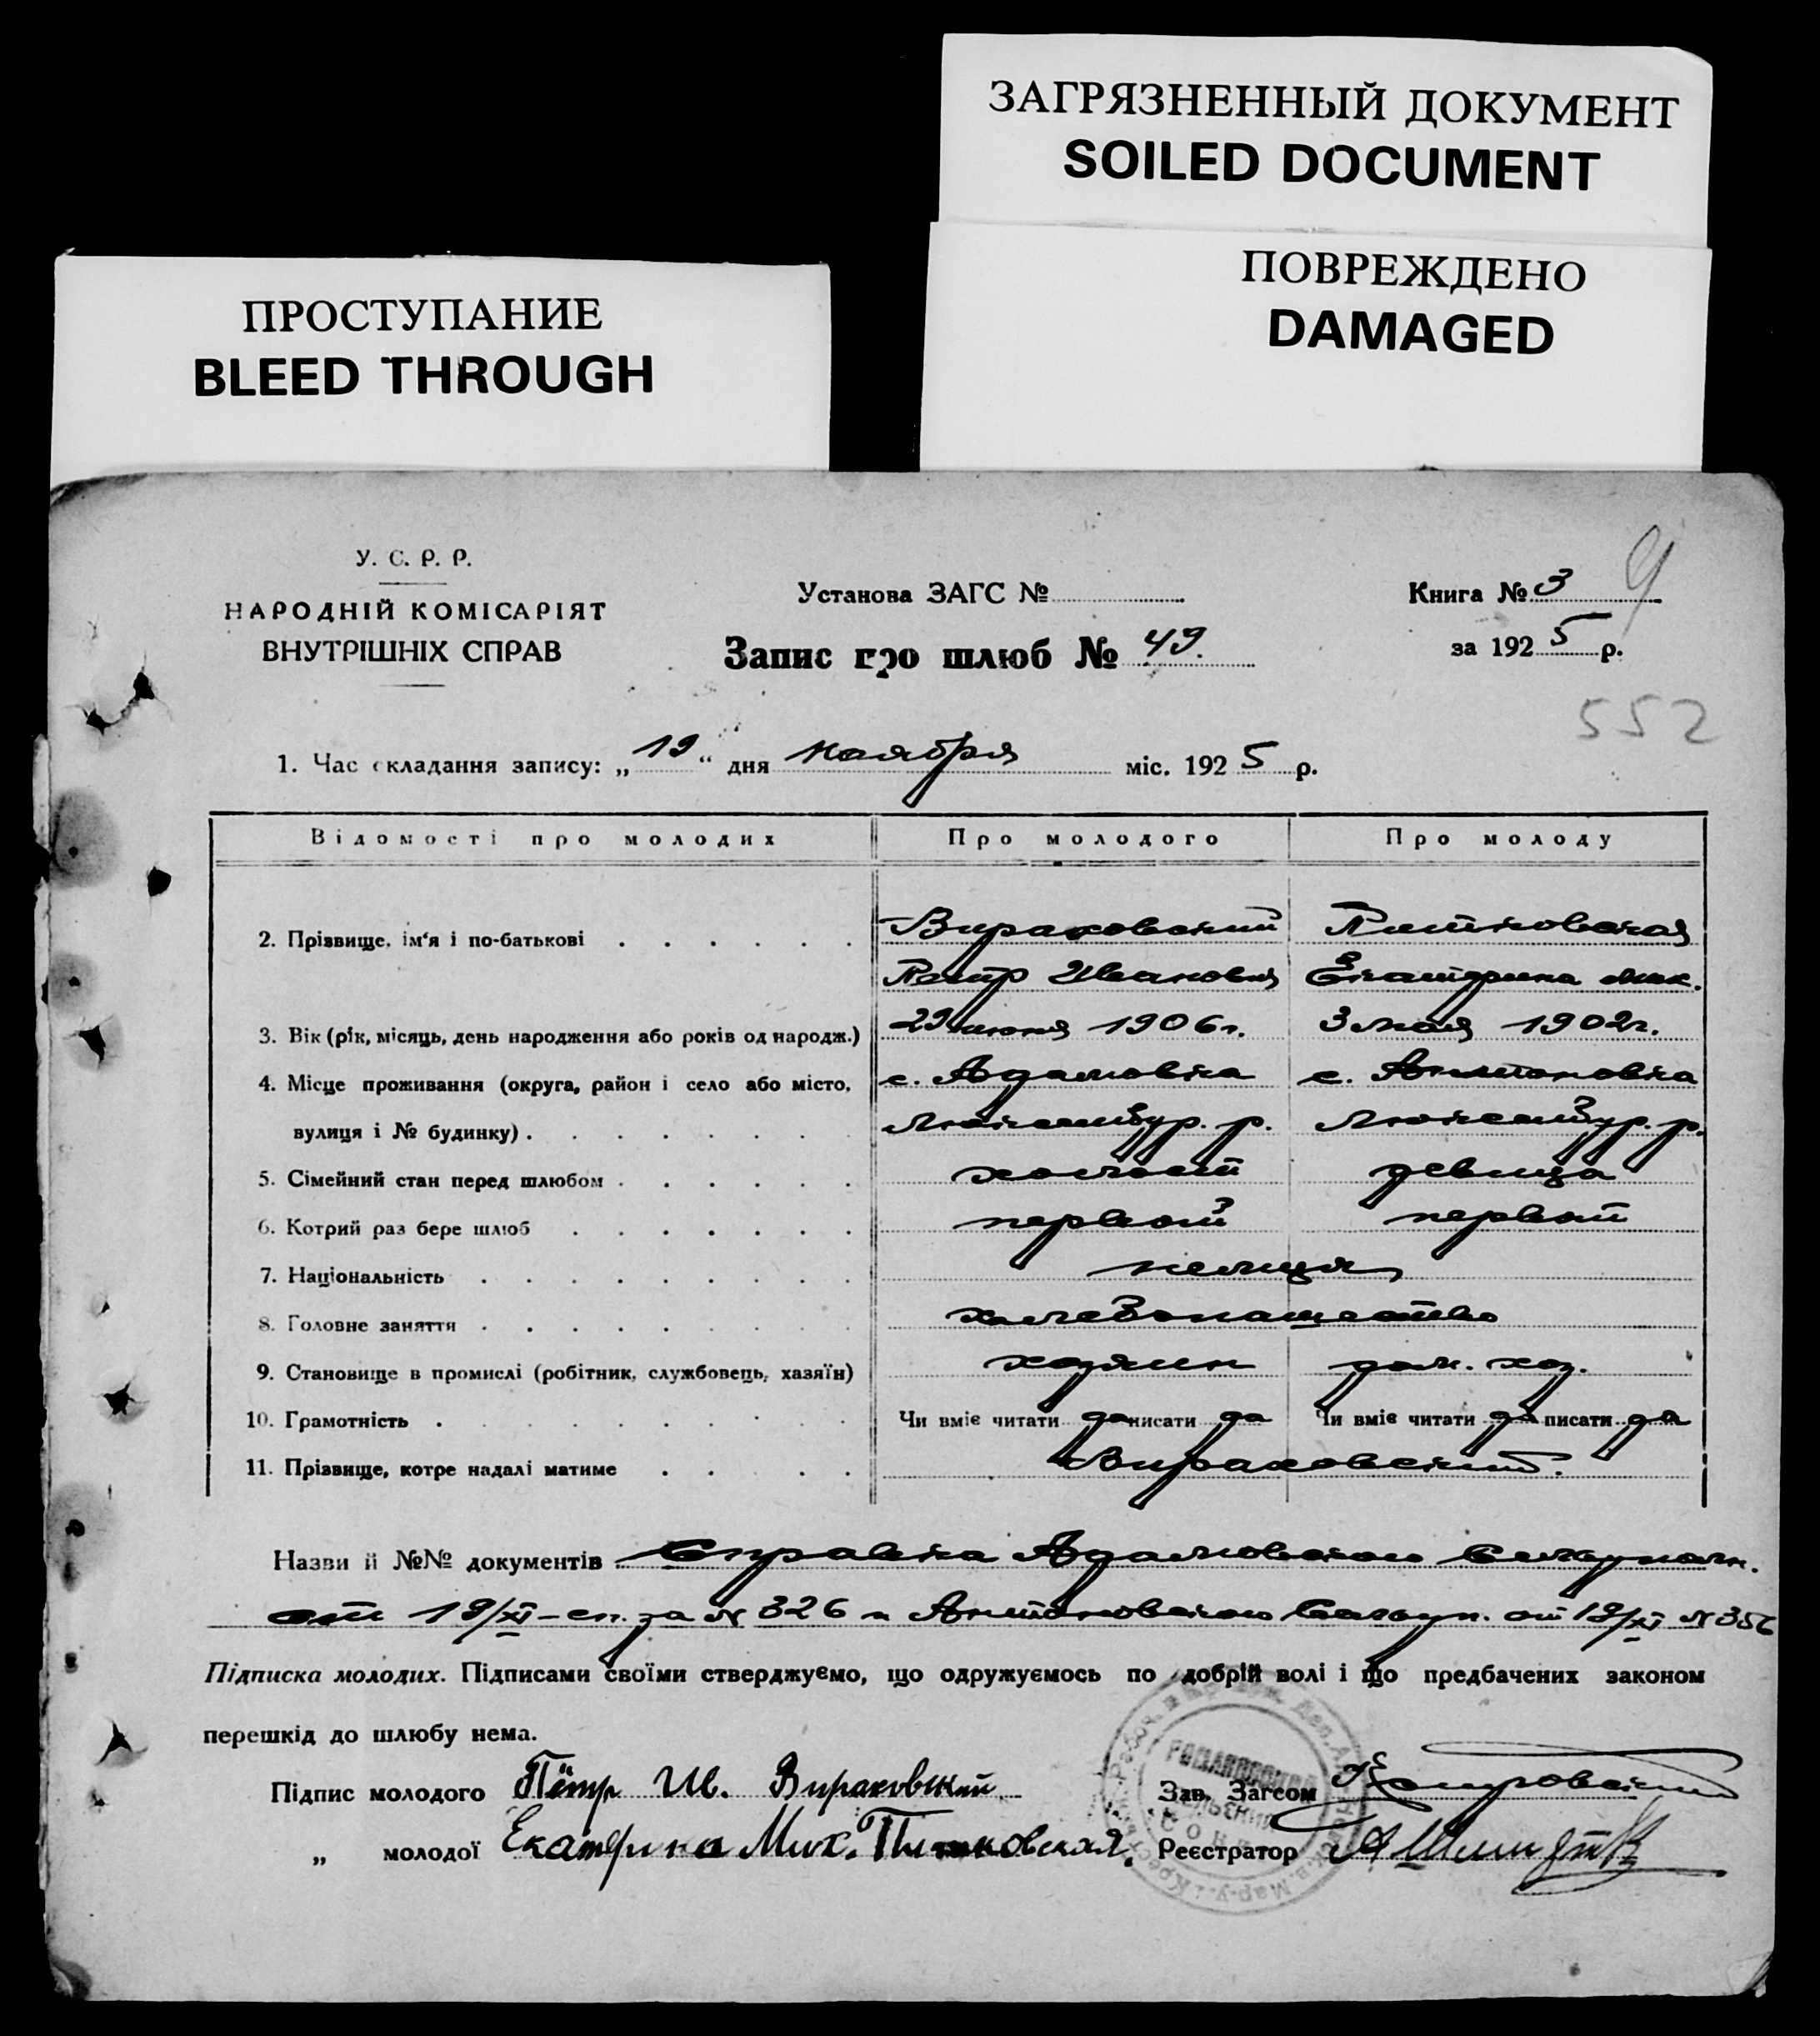 ЗАГРЯЗНЕННЫЙ ДОКУМЕНТ
SOILED DOCUMENT
ПОВРЕЖДЕНО
DAMAGED
ПРОСТУПАНИЕ
BLEED THROUGH
У. С. Р. Р.
НАРОДНІЙ КОМІСАРІЯТ
ВНУТРІШНІХ СПРАВ
Установа ЗАГС №
Запис про шлюб № 49.
Книга № 3
9
за 1925 р.
552
1. Час складання запису: „19“ дня ноября міс. 1925 р.
Відомості про молодих Про молодого Про молоду
2. Прізвище, ім'я і по-батькові Вираховский Питковская
Петр Иванович Екатерина Мих.
3. Вік (рік, місяць, день народження або років од народж.) 29 июня 1906 г. 3 мая 1902 г.
4. Місце проживання (округа, район і село або місто, с. Адамовка с. Антоновка
вулиця і № будинку) Люксембур. р. Люксембур. р.
5. Сімейний стан перед шлюбом холост девица
6. Котрий раз бере шлюб первой первой
7. Національність немцы
8. Головне заняття хлебопашество
9. Становище в промислі (робітник, службовець, хазяїн) хозяин дом. хоз.
10. Грамотність Чи вміє читати да писати да Чи вміє читати да писати да
11. Прізвище, котре надалі матиме Вираховский.
Назви й №№ документів Справка Адамовского Сельуполн.
от 19/XI-с.г. за № 326 и Антоновского Сельуп. от 19/XI № 356
Підписка молодих. Підписами своїми стверджуємо, що одружуємось по добрій волі і що предбачених законом
перешкід до шлюбу нема.
Підпис молодого Пётр Ив. Вираховский
Зав. Загсом
„ молодої Екатерина Мих. Питковская.
Реєстратор А Шмидт